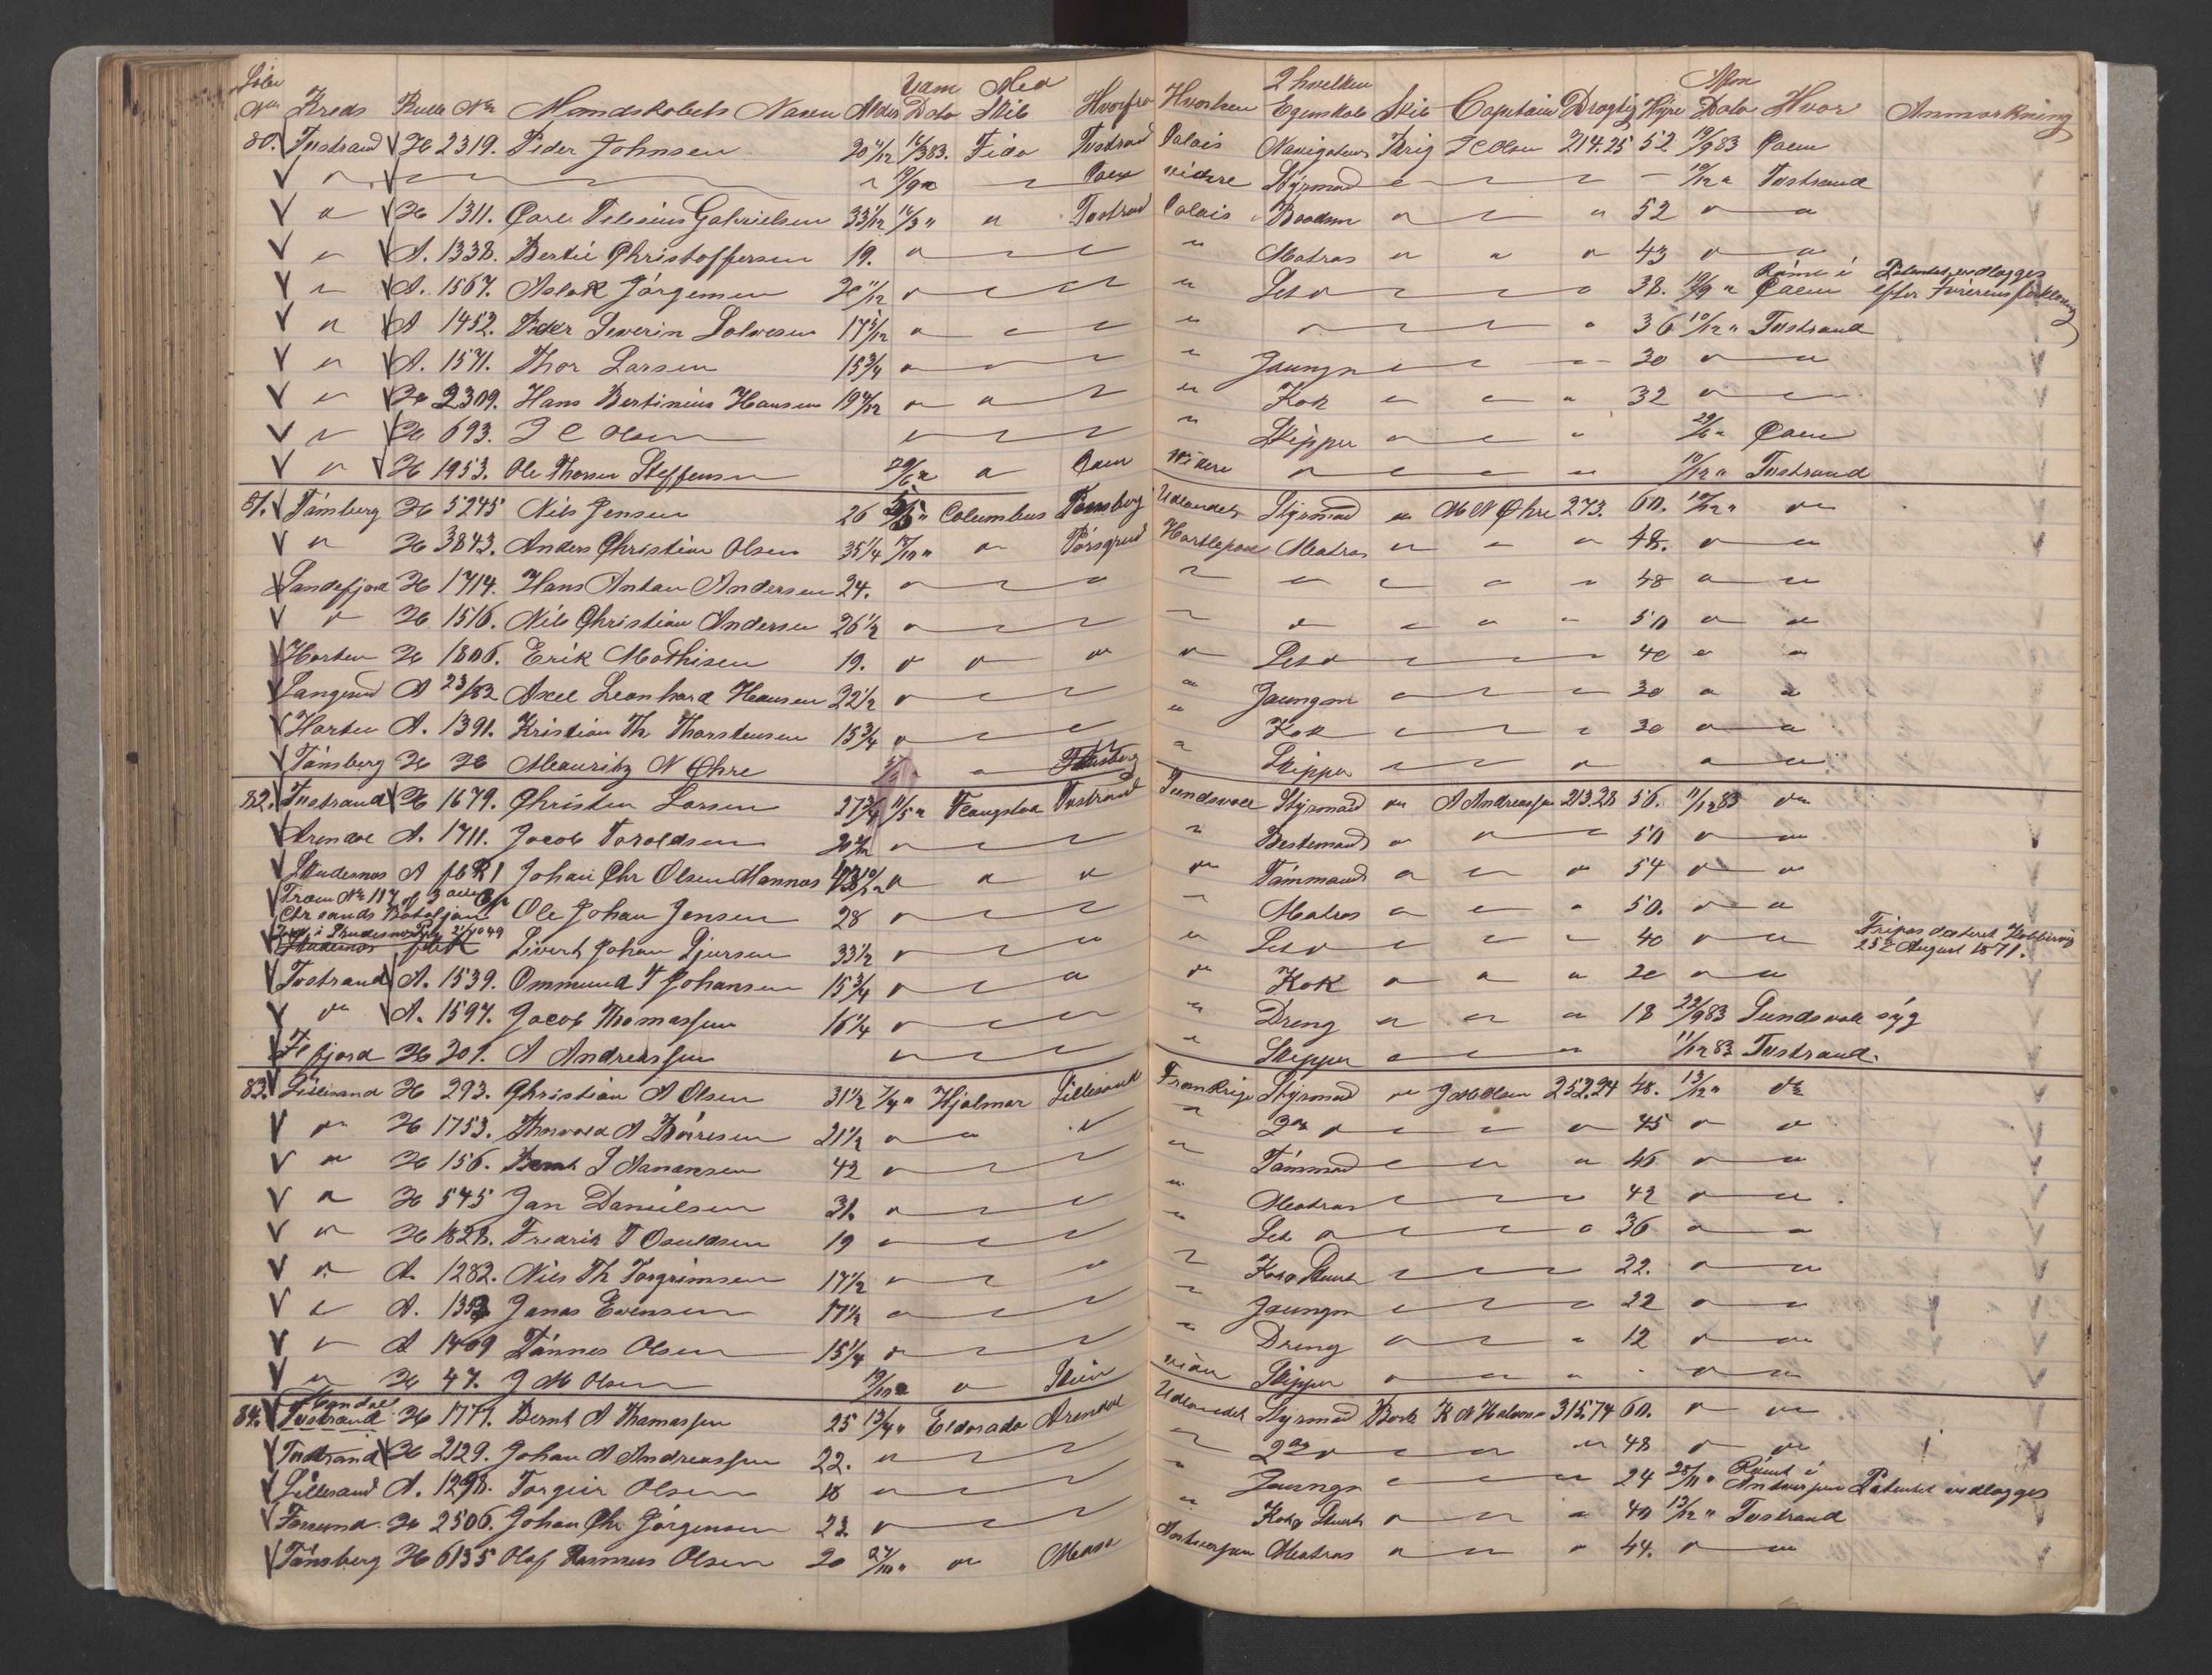 Löbe Vam Med 2 hvilken Afm
No Kreds Rulle No Mandskabets Navn Alder Dato Skib Hvorfra Hvorhen Egenskab Skib Capitain Drægtig Hyre Dato Hvor Anmærkning
80. Tvestrand H 2319. Peder Johnsen 20 11/12 16/3 83. Fido Tvestrand Calais Navigateur Brig I C Olsen 214.25 52 19/9 83 Caen
" " 19/9 " " Caen videre Styrmand " " " 10/12 " Tvestrand
" H 1311. Carl Telesius Gabrielsen 33 1/12 16/3 " " Tvestrand Calais Baadsm " " " 52 " "
" A. 1338. Bertil Christoffersen 19. " " " " Matros " " " 43 " "
" A. 1567. Aslak Jörgensen 20 11/12 " " " " Let " " " " 38. 19/9 " Römt i Caen Patentet vedlægges efter
" A 1452. Peder Severin Salvesen 17 5/12 " " " " " " " " 36 10/12 " Tvestrand
" A. 1571. Thor Larsen 15 3/4 " " " " Jaungm " " " 30 " "
" H 2309. Hans Bertinius Hansen 19 4/12 " " " " Kok " " " 32 " "
" H 693. I C Olsen " " " " Skipper " " " 29/6 " Caen
" H 1953. Ole Thorsen Steffensen 29/6 " " Caen videre " " " " 10/12 " Tvestrand
81. Tönsberg H 5245 Nils Jensen 26 5/5 " Columbus Tönsberg Udlandet Styrmand " M N Öhre 273. 60. 10/12 " "
" H 3843. Anders Christian Olsen 35 1/4 " Porsgrund Hartlepool Matros " " " 48. " "
Sandefjord H 1714. Hans Anton Andersen 24. " " " " " " " " 48 " "
" H 1516. Nils Christian Andersen 26 1/2 " " " " " " " " 50 " "
Horten H 1806. Erik Mathisen 19. " " " " Let " " " " 40 " "
Langesund A 23/82 Axel Leonhard Hansen 22 1/2 " " " " Jaungm " " " 30 " "
Horten A. 1391. Kristian Th Thorstensen 15 3/4 " " " " Kok " " " 30 " "
Tönsberg H H Mauritz N Öhre " Tönsberg " Skipper " " " " "
82. Tvestrand H 1679. Christen Larsen 27 3/4 11/5 " Tvestrand Sundsvall Styrmand " A Andreassen 213.28 56. 11/12 83 "
Arendal A. 1711. Jacob Taraldsen " " " " Bestemand " " " 50 " "
Skudesnæs A Johan Chr Olsen Mannæs " " " " Tömmand " " " 54 " "
From No 117 af 3
Chrsands Bataljon Ole Johan Jensen 28 " " " " Matros " " " 50. " "
Skudesnæs Sivert Johan Sjursen 33 1/2 " " " " Let " " " " 40 " " Fripas dateret 25de August 1871.
Tvestrand A. 1539. Ommund T Johansen 15 3/4 " " " " Kok " " " 20 " "
" A. 1597. Jacob Thomassen 16 1/4 " " " " Dreng " " " 18 22/9 83 Sundsvall syg
Flefjord H 301. A Andreassen " " " " Skipper " " " 11/12 83 Tvestrand.
83. Lillesand H 293. Christian A Olsen 31 1/2 7/4 " Hjalmar Lillesand Frankrige Styrmand " J M Olsen 252.24 48. 13/12 " do
" H 1753. Thorvald A Börresen 21 1/2 " " " " 2den " " " " 45 " "
" H 156. Bernt S Aanansen 42 " " " " Tömmand " " " 46 " "
" H 545 Jan Danielsen 31. " " " " Matros " " " 42 " "
" H 1828. Fredrik T Osuldsen 19 " " " " Let " " " " 36 " "
" A. 1282. Nils Th Torgrimsen 17 1/2 " " " " Kok o Stuert " " " 22. " "
" A. Jonas Evensen 17 1/2 " " " " Jaungm " " " 22 " "
" A 1409 Tönnes Olsen 15 1/4 " " " " Dreng " " " 12 " "
" H 47. J M Olsen 19/10 " " Skien videre Skipper " " " " "
84. Mandal Tvestrand H 1777. Bernt A Thomassen 25 13/4 " Eldorado Arendal Udlandet Styrmand Bark K N Halvorsen 315.74 60. " "
Tvestrand H 2129. Johan A Andreassen 22. " " " " 2den " " " " 48 " "
Lillesand A. 1298. Torgeir Olsen 18 " " " " Jaungm " " " 24 28/11 " Römt i Antwerpen Patentet vedlægges
Farsund. H 2506. Johan Chr Jörgensen 23. " " " " Kok o Stuert " " " 40 13/12 " Tvestrand
Tönsberg H 6135 Olaf Rasmus Olsen 20 27/10 " " Antwerpen Matros " " " 44. " "